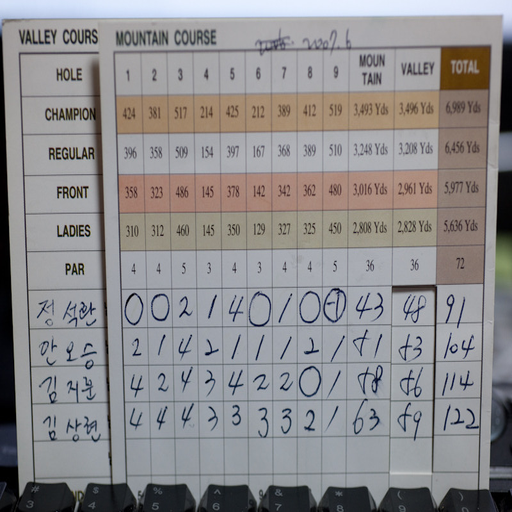 VALLEY COURS MOUNTAIN COURSE 2007.6
HOLE 1 2 3 4 5 6 7 8 9 MOUN TAIN VALLEY TOTAL
CHAMPION 424 381 517 214 425 212 389 412 519 3,493 Yds 3,496 Yds 6,989 Yds
REGULAR 396 358 509 154 397 167 368 389 510 3,248 Yds 3,208 Yds 6,456 Yds
FRONT 358 323 486 145 378 142 342 362 480 3,016 Yds 2,961 Yds 5,977 Yds
LADIES 310 312 460 145 350 129 327 325 450 2,808 Yds 2,828 Yds 5,636 Yds
PAR 4 4 5 3 4 3 4 4 5 36 36 72
정석관 0 0 2 1 4 0 1 0 -1 43 48 91
안오승 2 1 4 2 1 1 1 2 1 51 53 104
김지문 4 2 4 3 4 2 2 0 1 58 56 114
김상현 4 4 4 3 3 3 3 2 1 63 59 122
# $ % ^ & * ( )
3 4 5 6 7 8 9 0